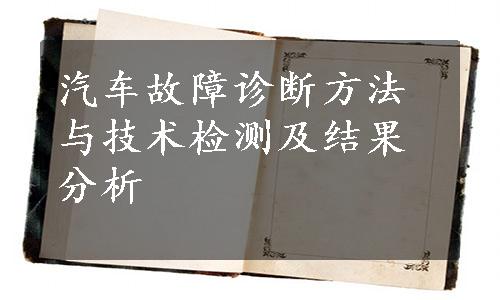 汽车故障诊断方法
与技术检测及结果
分析